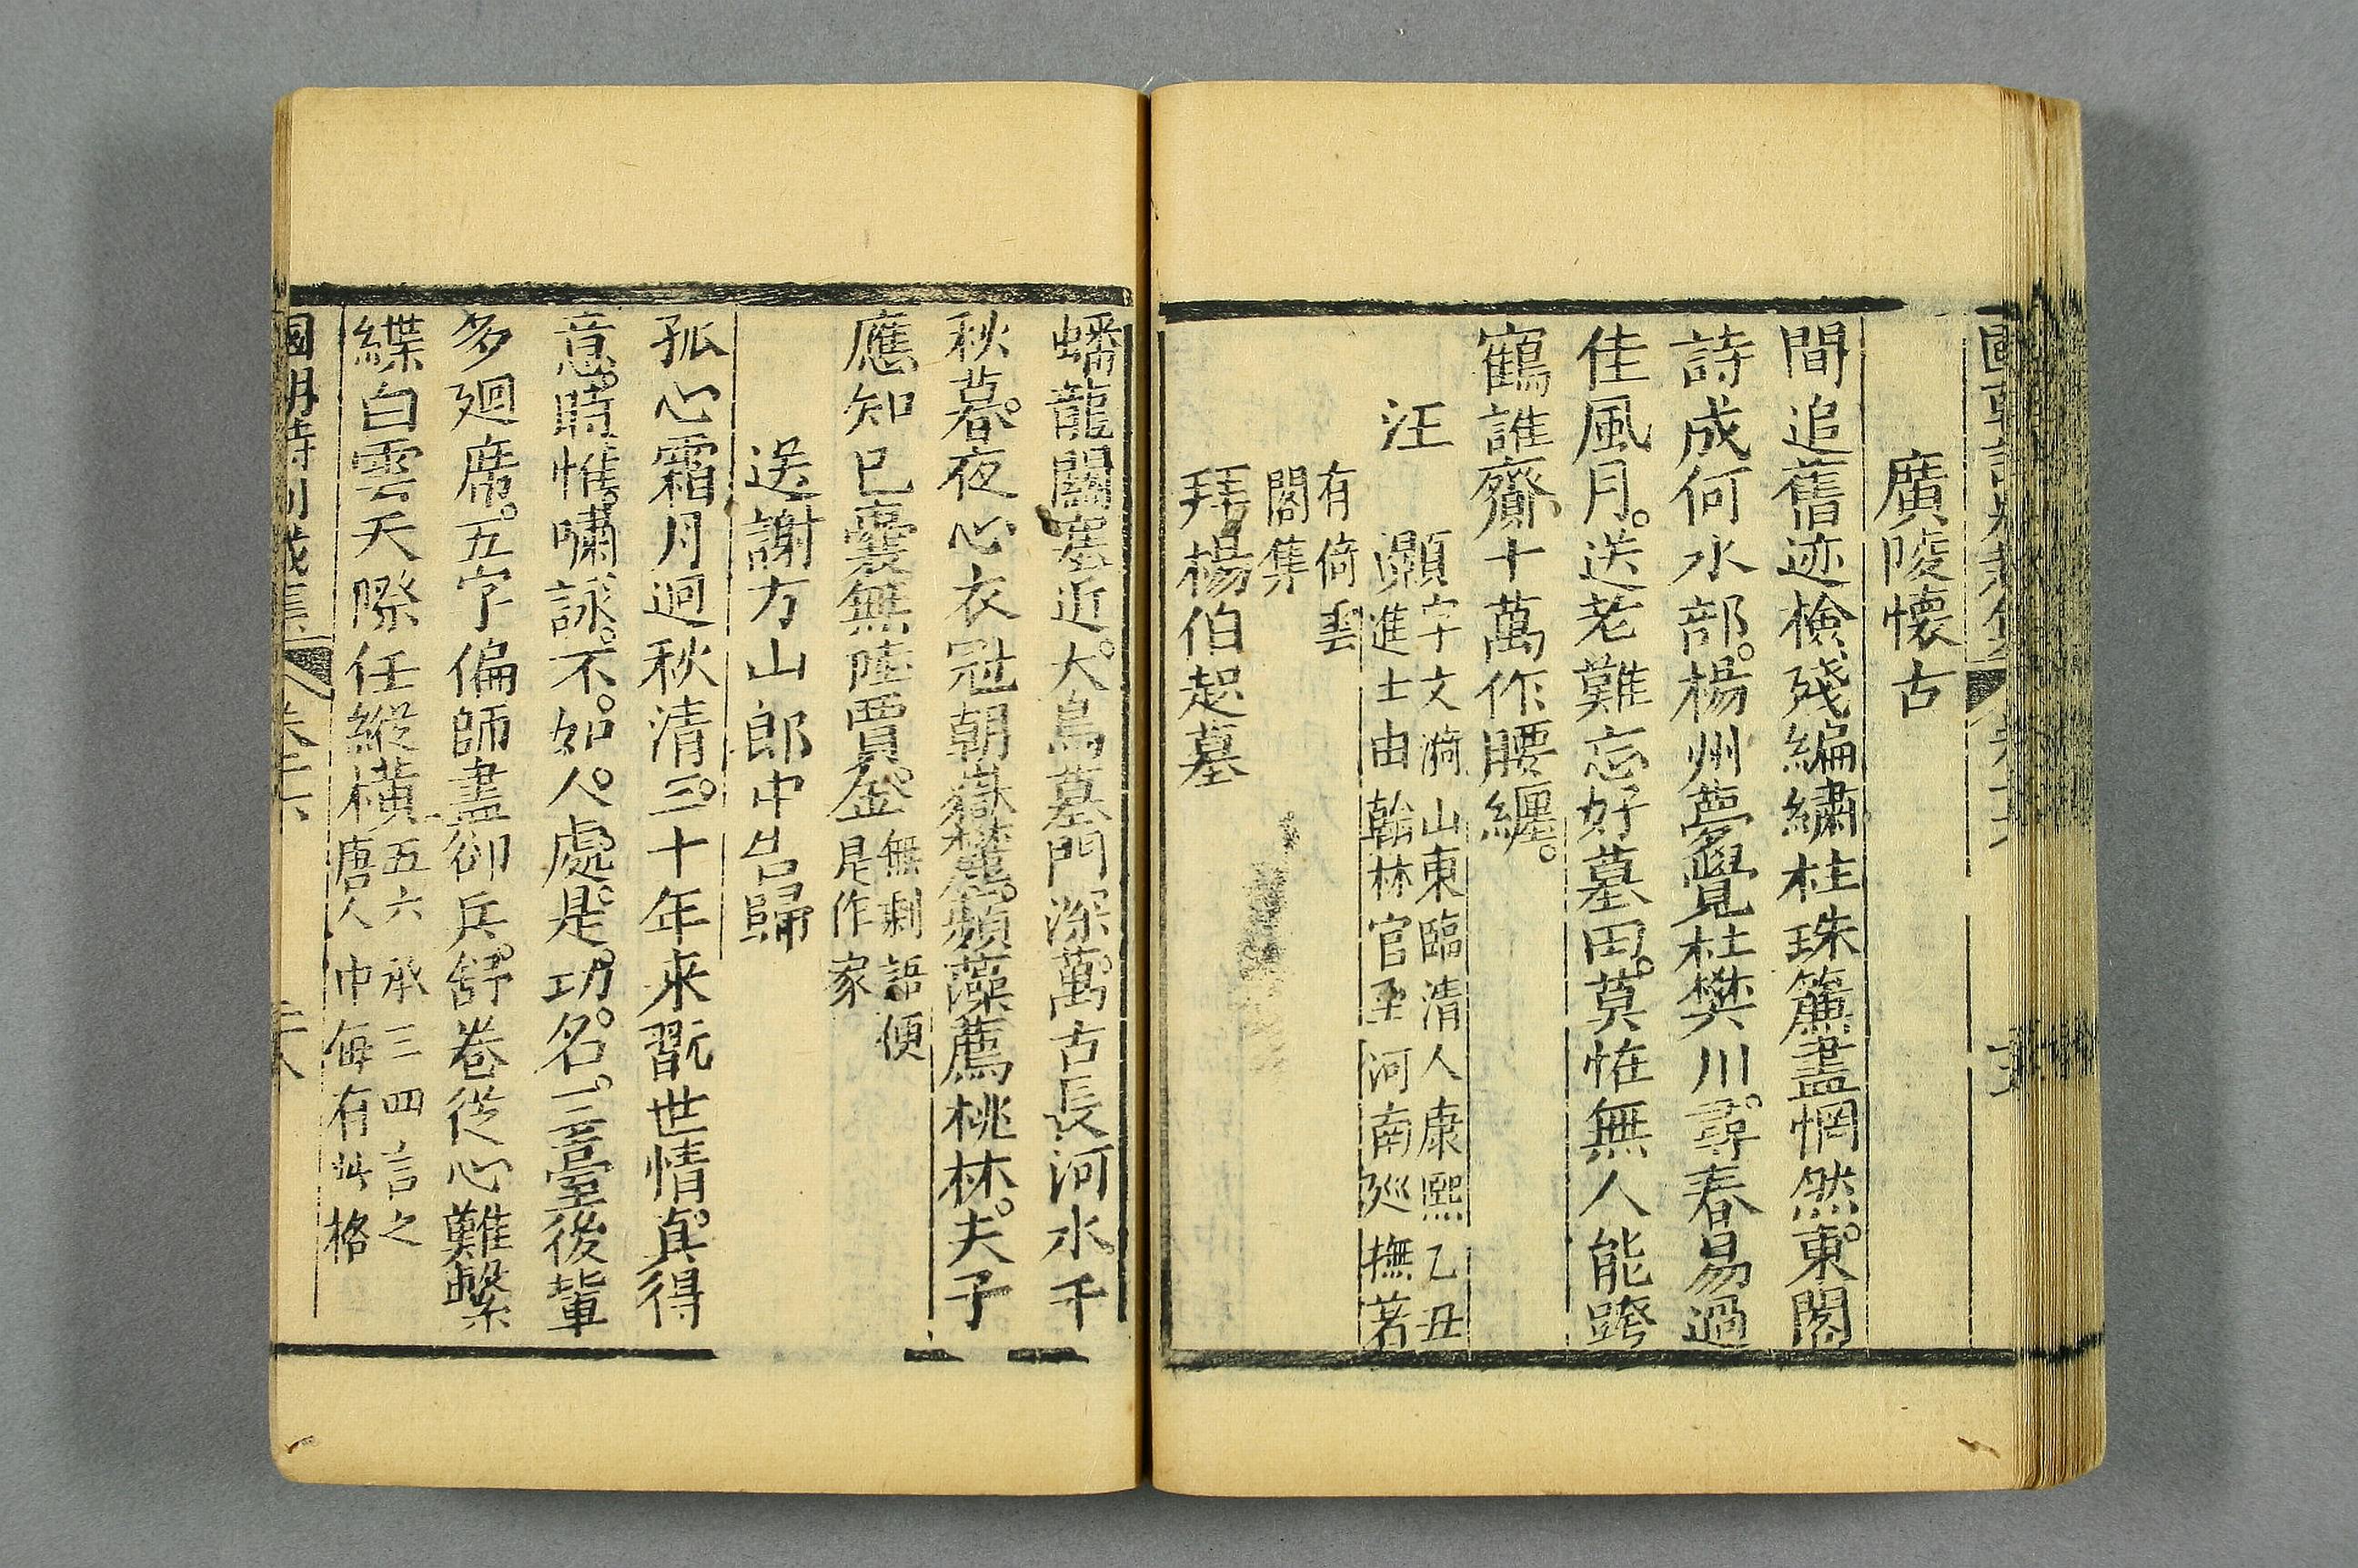 廣陵懷古
間追舊迹檢殘編繡柱珠簾盡惘然東閣
詩成何水部楊州夢覺杜樊川尋春易過
佳風月送老難忘好墓田莫恠無人能跨
鶴誰齎十萬作腰纏
汪灝
字文漪山東臨清人康熙乙丑
進士由翰林官至河南廵撫著
有倚雲
閣集
拜楊伯起墓
蟠龍關塞近大鳥墓門深萬古長河水千
秋暮夜心衣冠朝嶽麓蘋藻薦桃林夫子
應知已囊無陸賈金
無剩語便
是作家
送謝方山郎中告歸
孤心霜月迥秋清三十年來翫世情真得
意時惟嘯詠不如人處是功名三臺後輩
多廻席五字偏師盡卻兵舒卷從心難繫
緤白雲天際任縱橫
五六承三四言之
唐人中每有此格